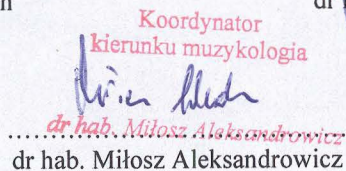 Koordynator
kierunku muzykologia
dr hab. Miłosz Aleksandrowicz
dr hab. Miłosz Aleksandrowicz